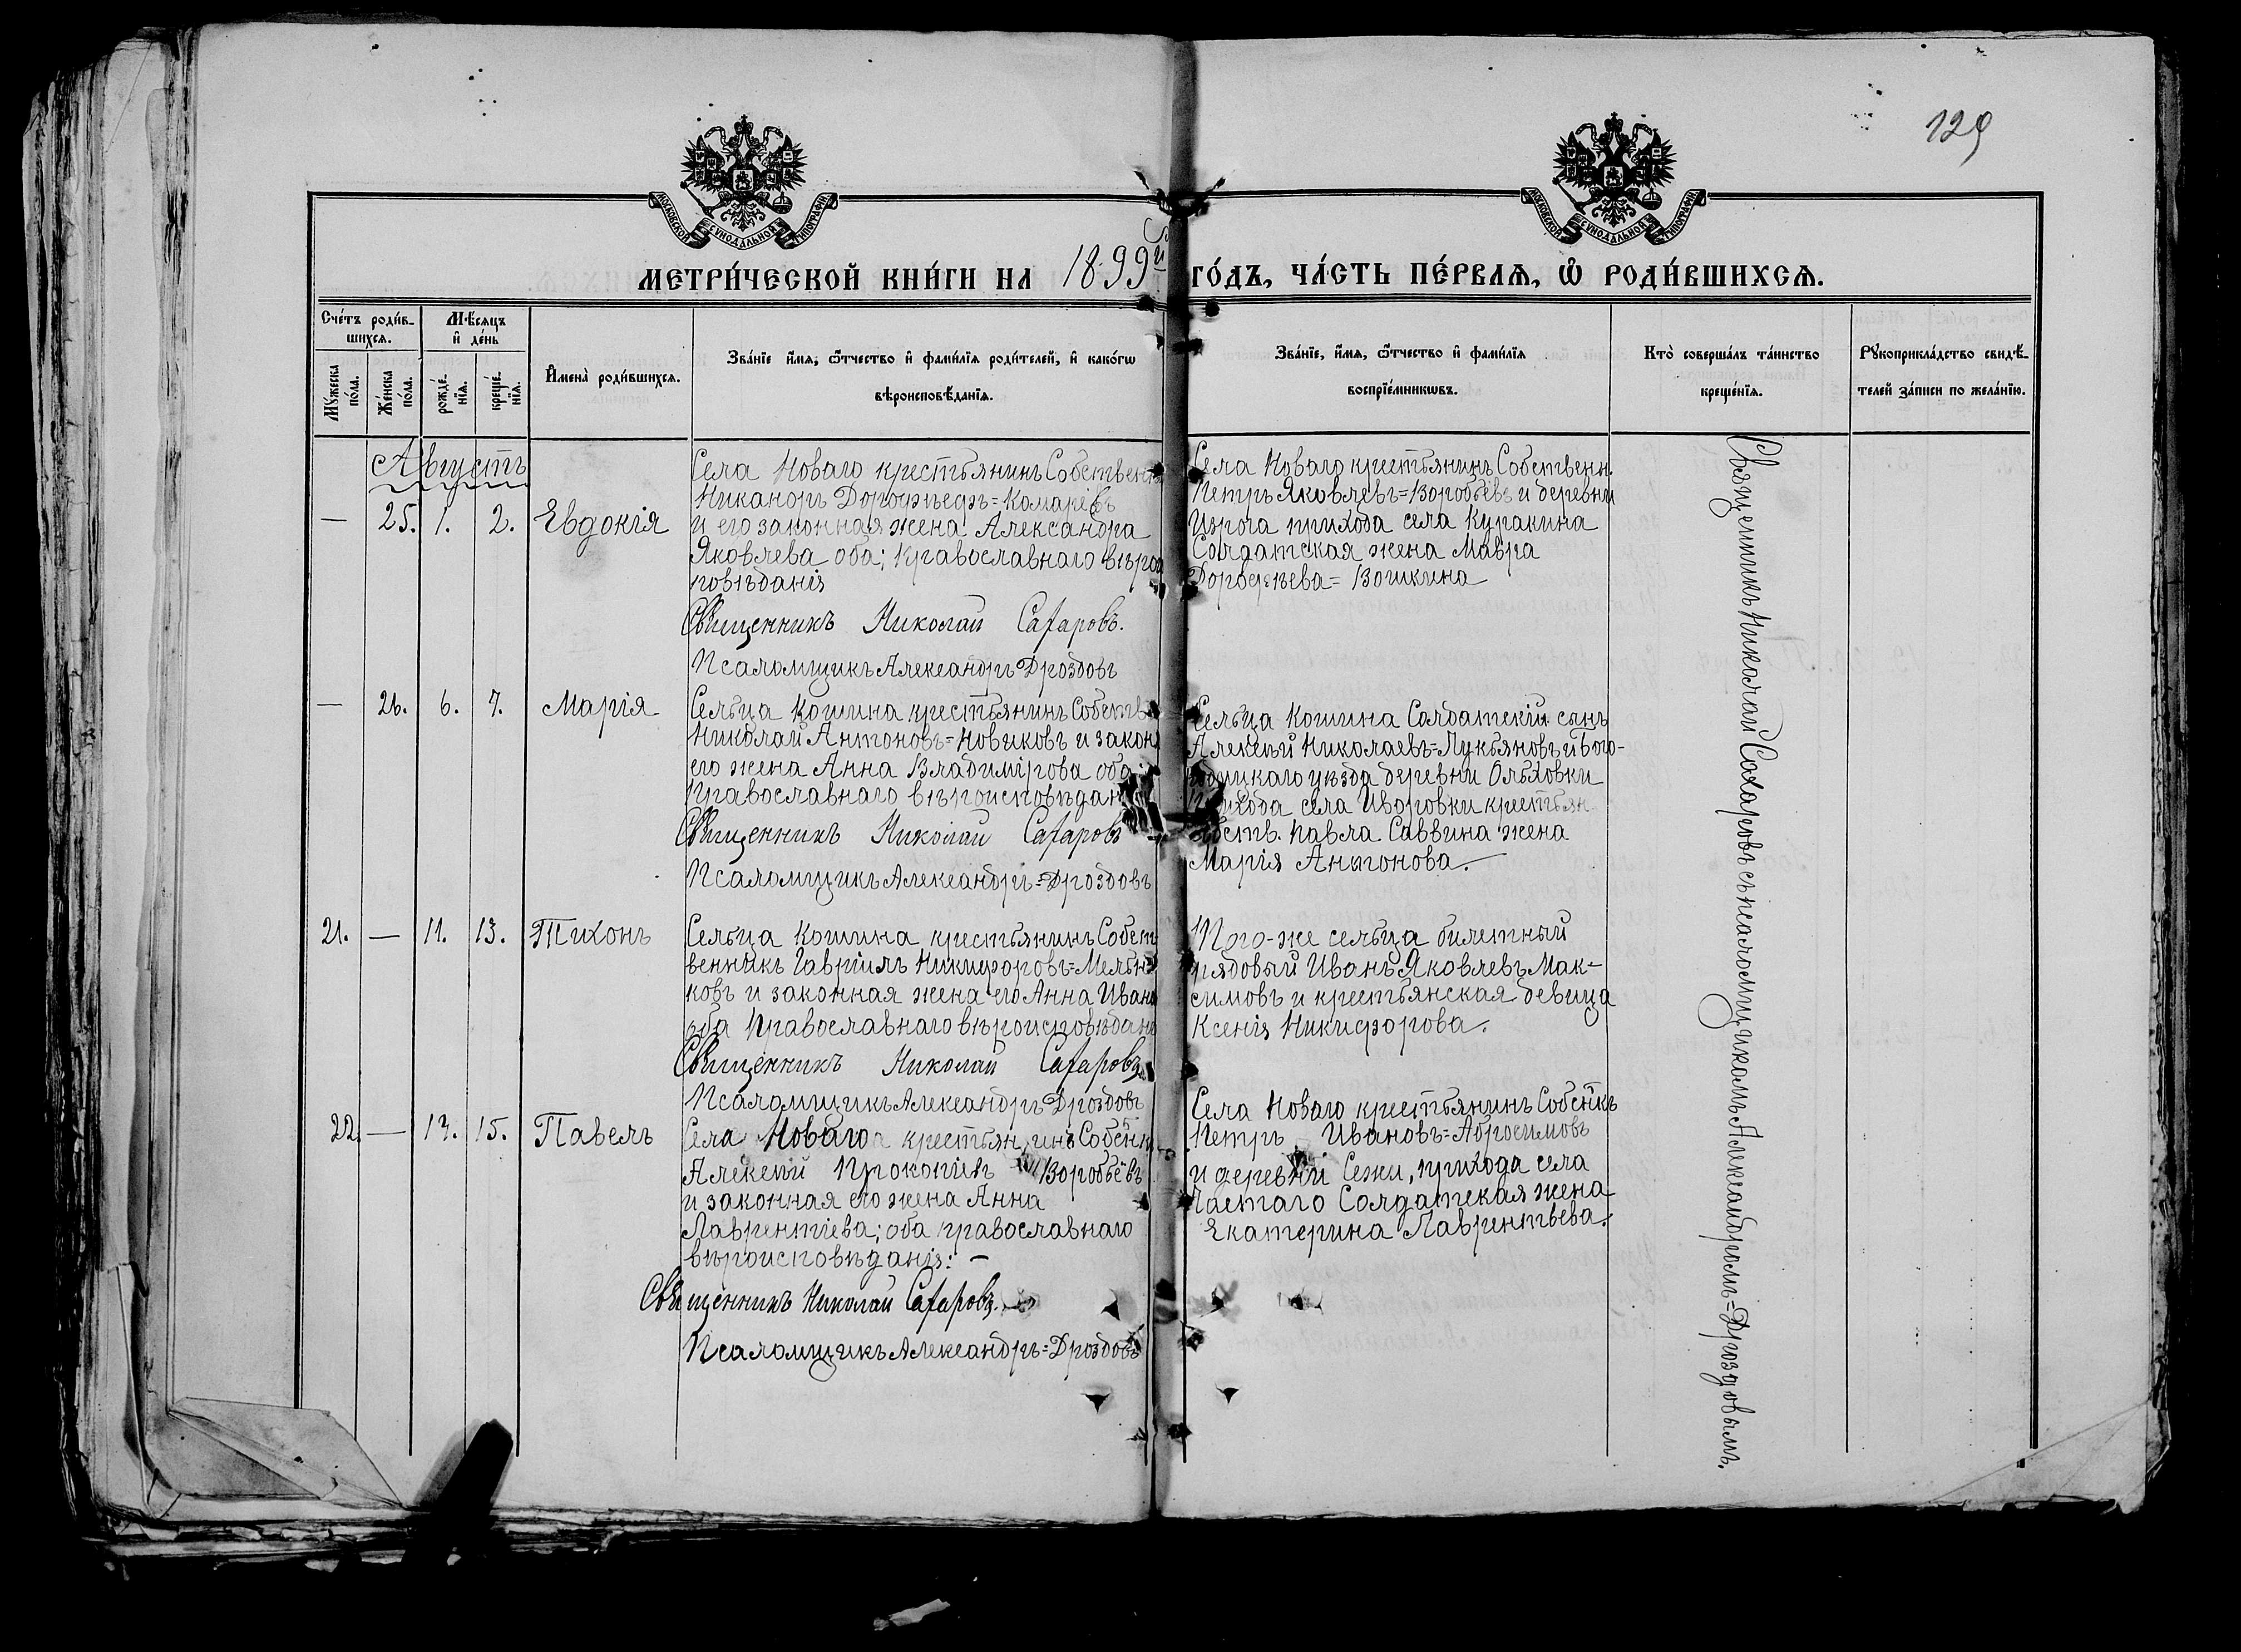 129
МОСКОВСКОЙ СѴНОДАЛЬНОЙ ТИПОГРАФІИ
МОСКОВСКОЙ СѴНОДАЛЬНОЙ ТИПОГРАФІИ
МЕТРИ́ЧЕСКОЙ КНИ́ГИ НА 1899й ГО́ДЪ, ЧА́СТЬ ПЕ́РВАѦ, Ѡ РОДИ́ВШИХСѦ.
Сче́тъ роди́в-
шихсѧ.
Мѣ́сѧцъ
и҆ де́нь
Мꙋ́жеска
по́ла.
Же́нска
по́ла.
рожде́-
нїѧ.
креще́-
нїѧ.
И҆мена̀ роди́вшихсѧ.
Зва́нїе и҆́мѧ, ѻ҆́тчество и҆ фами́лїѧ роди́телей, и҆ како́гѡ
вѣроисповѣ́данїѧ.
Зва́нїе, и҆́мѧ, ѻ҆́тчество и҆ фами́лїѧ
воспрїе́мникѡвъ.
Кто̀ соверша́лъ та́инство
креще́нїѧ.
Рꙋкоприкла́дство свидѣ́-
телей за́писи по жела́нїю.
Августъ
— 25. 1. 2. Евдокія
Села Новаго крестьянинъ Собственн
Никаноръ Дорофѣефъ=Комарёвъ
и его законная жена Александра
Яковлева оба; Православнаго вѣрои
повѣданія
Священникъ Николай Сахаровъ.
Псаломщикъ Александръ Дроздовъ
Села Новаго крестьянинъ Собственн.
Петръ Яковлевъ=Воробьёвъ и деревни
прихода села Куракина
Солдатская жена Мавра
Дорофѣева= Вошкина
— 26. 6. 7. Марія
Сельца Кошина крестьянинъ Собств
Николай Антоновъ=Новиковъ и закон
его жена Анна Владимірова оба
Православнаго вѣроисповѣдан
Священникъ Николай Сахаровъ
Псаломщикъ Александръ=Дроздовъ
Сельца Кошина Солдатскій сынъ
Алексѣй Николаевъ=Лукьяновъ и Бого-
родицкаго уѣзда деревни Ольховки
прихода села Иворовки крестьян
Собств. Павла Саввина жена
Марія Антонова.
21. — 11. 13. Тихонъ
Сельца Кошина крестьянинъ Собст
венникъ Гавріилъ Никифоровъ=Мельни
ковъ и законная жена его Анна Иван
оба Православнаго вѣроисповѣдані
Священникъ Николай Сахаровъ
Псаломщикъ Александръ Дроздовъ
Того-же сельца билетный
рядовый Иванъ Яковлевъ Мак-
симовъ и крестьянская девица
Ксенія Никифорова.
22. — 13. 15. Павелъ
Села Новаго крестьянинъ Собсник
Алексѣй Прокопіевъ Воробьёвъ
и законная его жена Анна
Лаврентіева; оба православнаго
вѣроисповѣданія: —
Священникъ Николай Сахаровъ.
Псаломщикъ Александръ=Дроздовъ
Села Новаго крестьянинъ Собсникъ
Петръ Ивановъ=Абросимовъ
и деревни Сежи, прихода села
Частаго Солдатская жена
Екатерина Лаврентьева.
Священникъ Николай Сахаровъ съ псаломщикомъ Александромъ=Дроздовымъ.